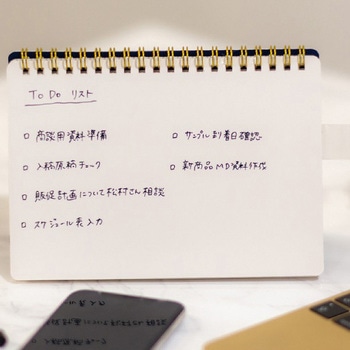 ToDo リスト
□ 商談用資料準備
□ 入稿原稿チェック
□ 販促計画について松村さん相談
□ スケジュール表入力
□ サンプル到着日確認
□ 新商品MD資料作成